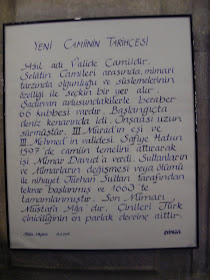 YENİ CAMİİNİN TARİHÇESİ
Asıl adı Valide Camiidir.
Selâtin Camileri arasında, mimari
tarzında olgunluğu ve süslemelerinin
özelliği ile seçkin bir yer alır.
Şadırvan avlusundakilerle beraber
66 kubbesi vardır. Başlangıçta
deniz kenarında idi. İnşaası uzun
sürmüştür. III Murad'ın eşi ve
III Mehmet'in validesi Safiye Hatun
1597'de camiin temelini attırarak
işi Mimar Davud'a verdi. Sultanların
ve Mimarların değişmesi veya ölümü
ile nihayet Turhan Sultan tarafından
tekrar başlanmış ve 1663'te
tamamlanmıştır. Son Mimarı
Mustafa Ağa dır. Çinileri Türk
çiniciliğinin en parlak devrine aittir.